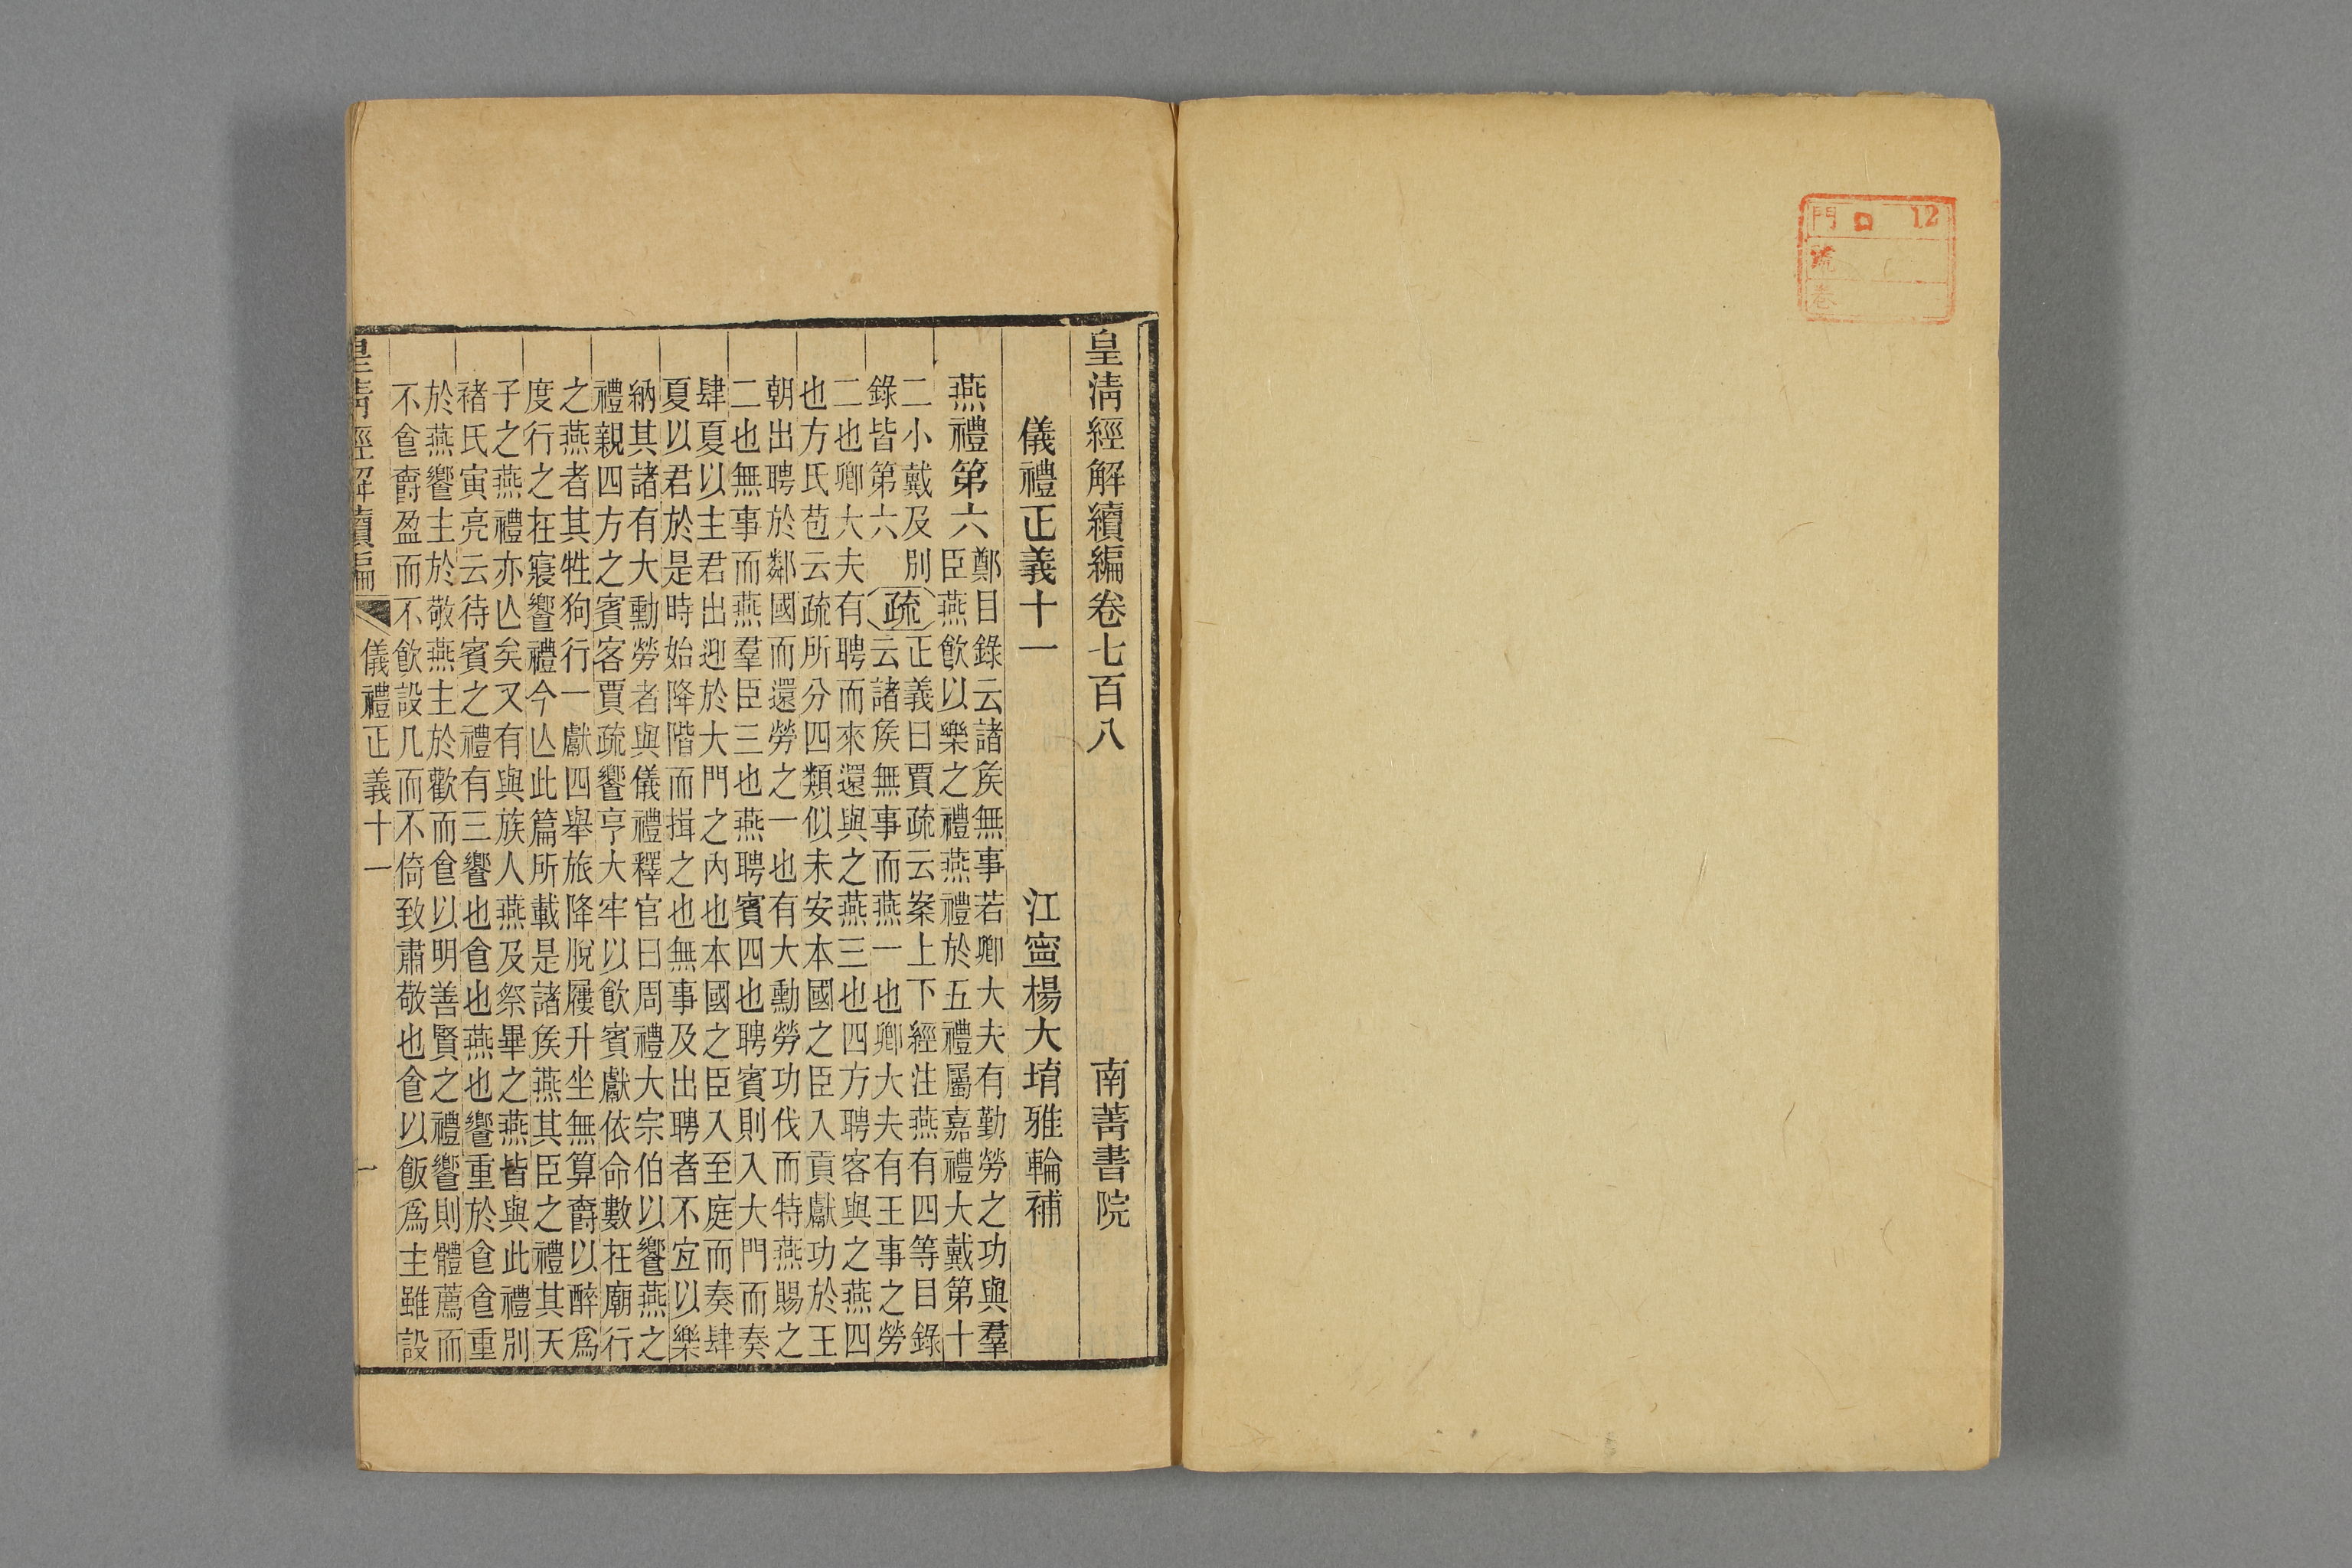 門 口 12
號
卷
皇淸經解續編卷七百八 南菁書院
儀禮正義十一 江寧楊大堉雅輪補
燕禮第六
鄭目錄云諸矦無事若卿大夫有勤勞之功與羣
臣燕飮以樂之禮燕禮於五禮屬嘉禮大戴第十
二小戴及別
錄皆第六
疏
正義曰賈疏云案上下經注燕有四等目錄
云諸矦無事而燕一也卿大夫有王事之勞
二也卿大夫有聘而來還與之燕三也四方聘客與之燕四
也方氏苞云疏所分四類似未安本國之臣入貢獻功於王
朝出聘於鄰國而還勞之一也有大勳勞功伐而特燕賜之
二也無事而燕羣臣三也燕聘賓四也聘賓則入大門而奏
肆夏以主君出迎於大門之內也本國之臣入至庭而奏肆
夏以君於是時始降階而揖之也無事及出聘者不宜以樂
納其諸有大勳勞者與儀禮釋官曰周禮大宗伯以饗燕之
禮親四方之賓客賈疏饗亨大牢以飮賓獻依命數在廟行
之燕者其牲狗行一獻四舉旅降脫屨升坐無算爵以醉爲
度行之在寢饗禮今亾此篇所載是諸矦燕其臣之禮其天
子之燕禮亦亾矣又有與族人燕及祭畢之燕皆與此禮別
褚氏寅亮云待賓之禮有三饗也食也燕也饗重於食食重
於燕饗主於敬燕主於歡而食以明善賢之禮饗則體薦而
不食爵盈而不飮設几而不倚致肅敬也食以飯爲主雖設
皇淸經解續編 儀禮正義十一 一